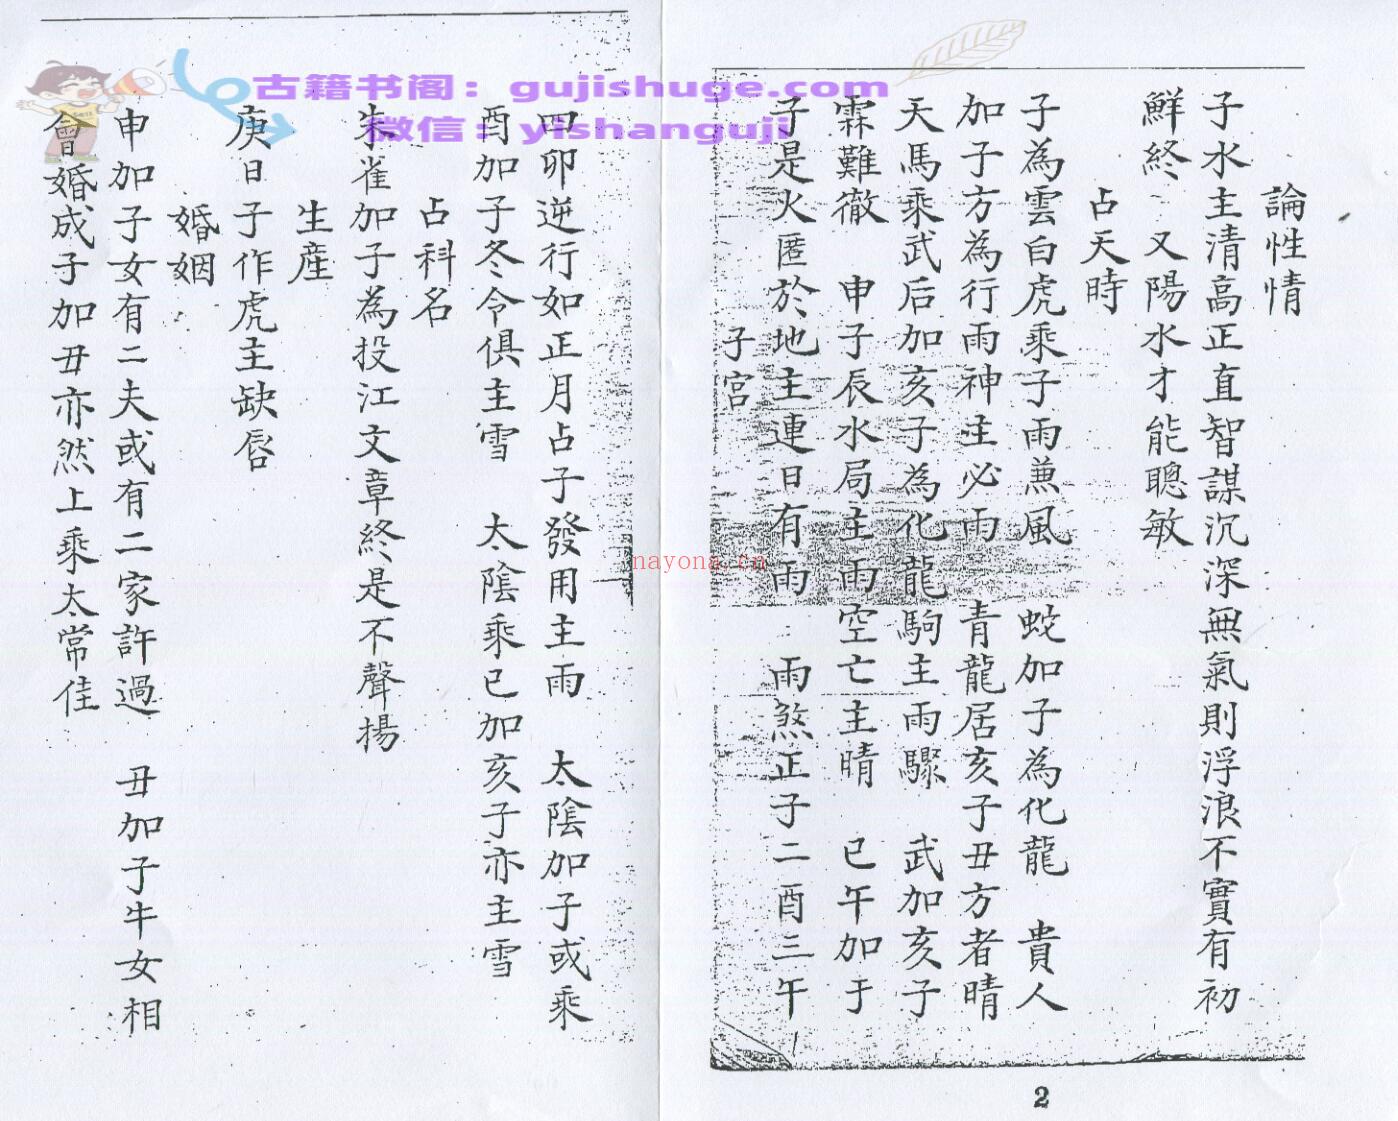 古籍书阁：gujishuge.com
微信：yishanguji
論性情
子水主清高正直智謀沉深無氣則浮浪不實有初
鮮終 又陽水才能聰敏
占天時
子為雲白虎乘子雨兼風 蛇加子為化龍 貴人
加子方為行雨神主必雨 青龍居亥子丑方者晴
天馬乘武后加亥子為化龍駒主雨驟 武加亥子
霖難徹 申子辰水局主雨空亡主晴 已午加于
子是火匿於地主連日有雨 雨煞正子二酉三午
子宮
四卯逆行如正月占子發用主雨 太陰加子或乘
酉加子冬令俱主雪 太陰乘已加亥子亦主雪
占科名
朱雀加子為投江文章終是不聲揚
生産
庚日子作虎主缺唇
婚姻
申加子女有二夫或有二家許過 丑加子牛女相
會婚成子加丑亦然上乘太常佳
nayona.cn
2